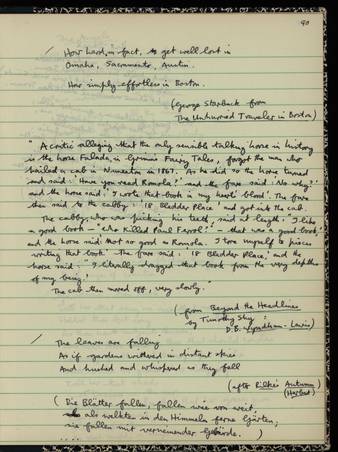 90
/ How hard, in fact, to get well lost in
Omaha, Sacramento, Austin.
How simply effortless in Boston.
(George Starbuck from
The Unhurried Traveler in Boston)
" A critic alleging that the only sensible talking horse in history
is the horse Falada, in Grimm's Fairy Tales, forgot the man who
hailed a cab in Nuneaton in 1867. As he did so the horse turned
and said: 'Have you read Romola?' and the fare said: 'No. Why?'
and the horse said: 'I wrote that book in my heart's blood'. The fare
then said to the cabby: '18 Bledder Place' and got into the cab.
The cabby, who was picking his teeth, said at length: "I like
a good book – 'Who Killed Paul Farrol?' – that was a good book.'
and the horse said: 'Not so good as Romola. I tore myself to pieces
writing that book.' The fare said: '18 Bledder Place,' and the
horse said: "I literally dragged that book from the very depths
of my being.'
The cab then moved off, very slowly."
(from Beyond the Headlines
by Timothy Shy
D.B. Wyndham-Lewis)
/ The leaves are falling
As if gardens withered in distant skies
And hushed and whispered as they fell
(after Rilke's Autumn)
(Herbst)
( Die Blätter fallen, fallen wie von weit
als welkten in den Himmeln ferne Gärten;
sie fallen mit verneinender Gebärde. )
....